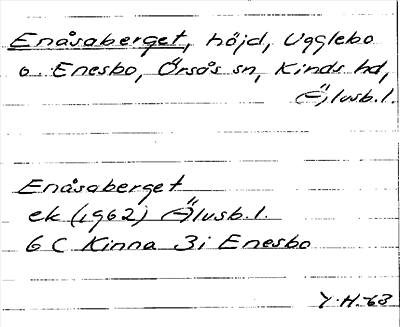 Enåsaberget, höjd, Ugglebo
o. Enesbo, Örsås sn, Kinds hd,
Älvsb.l.
Enåsaberget
ek (1962) Älvsb.l.
6 C Kinna 3i Enesbo
Y.H.-63